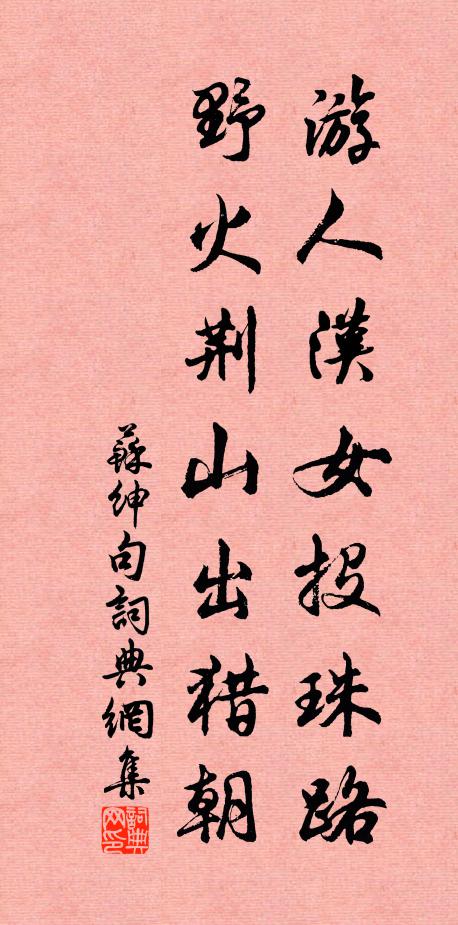 游人漢女投珠路
野火荆山出猎朝
蘇紳句詞典網集
詞典网印